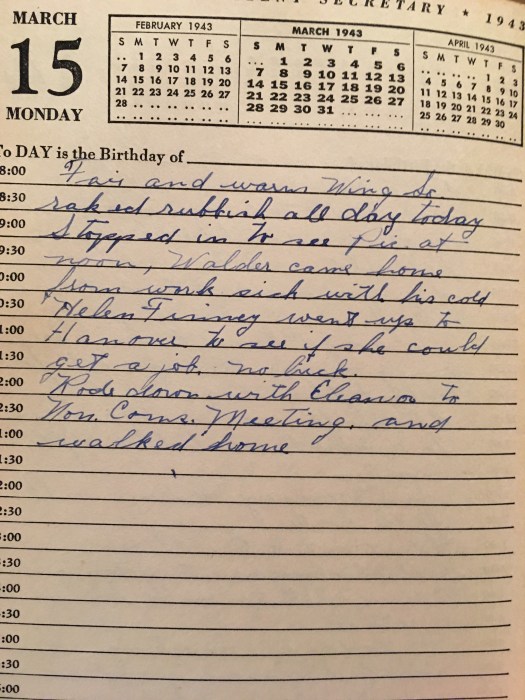 SECRETARY ★ 1943
MARCH
15
MONDAY
FEBRUARY 1943
S M T W T F S
.. 1 2 3 4 5 6
7 8 9 10 11 12 13
14 15 16 17 18 19 20
21 22 23 24 25 26 27
28 .. .. .. .. .. ..
MARCH 1943
S M T W T F S
... 1 2 3 4 5 6
7 8 9 10 11 12 13
14 15 16 17 18 19 20
21 22 23 24 25 26 27
28 29 30 31 ... ... ...
APRIL 1943
S M T W T F S
.. .. .. .. 1 2 3
4 5 6 7 8 9 10
11 12 13 14 15 16 17
18 19 20 21 22 23 24
25 26 27 28 29 30 ..
To DAY is the Birthday of
8:00 Fair and warm Wing So
8:30 raked rubbish all day today
9:00 Stopped in to see Pic. at
9:30 noon, Walder came home
0:00 from work sick with his cold
0:30 Helen Finney went up to
1:00 Hanover to see if she could
1:30 get a job. no luck.
2:00 Rode down with Eleanor to
2:30 Non. Coms. Meeting, and
1:00 walked home
1:30
2:00
2:30
:00
:30
:00
:30
:00
:30
:00